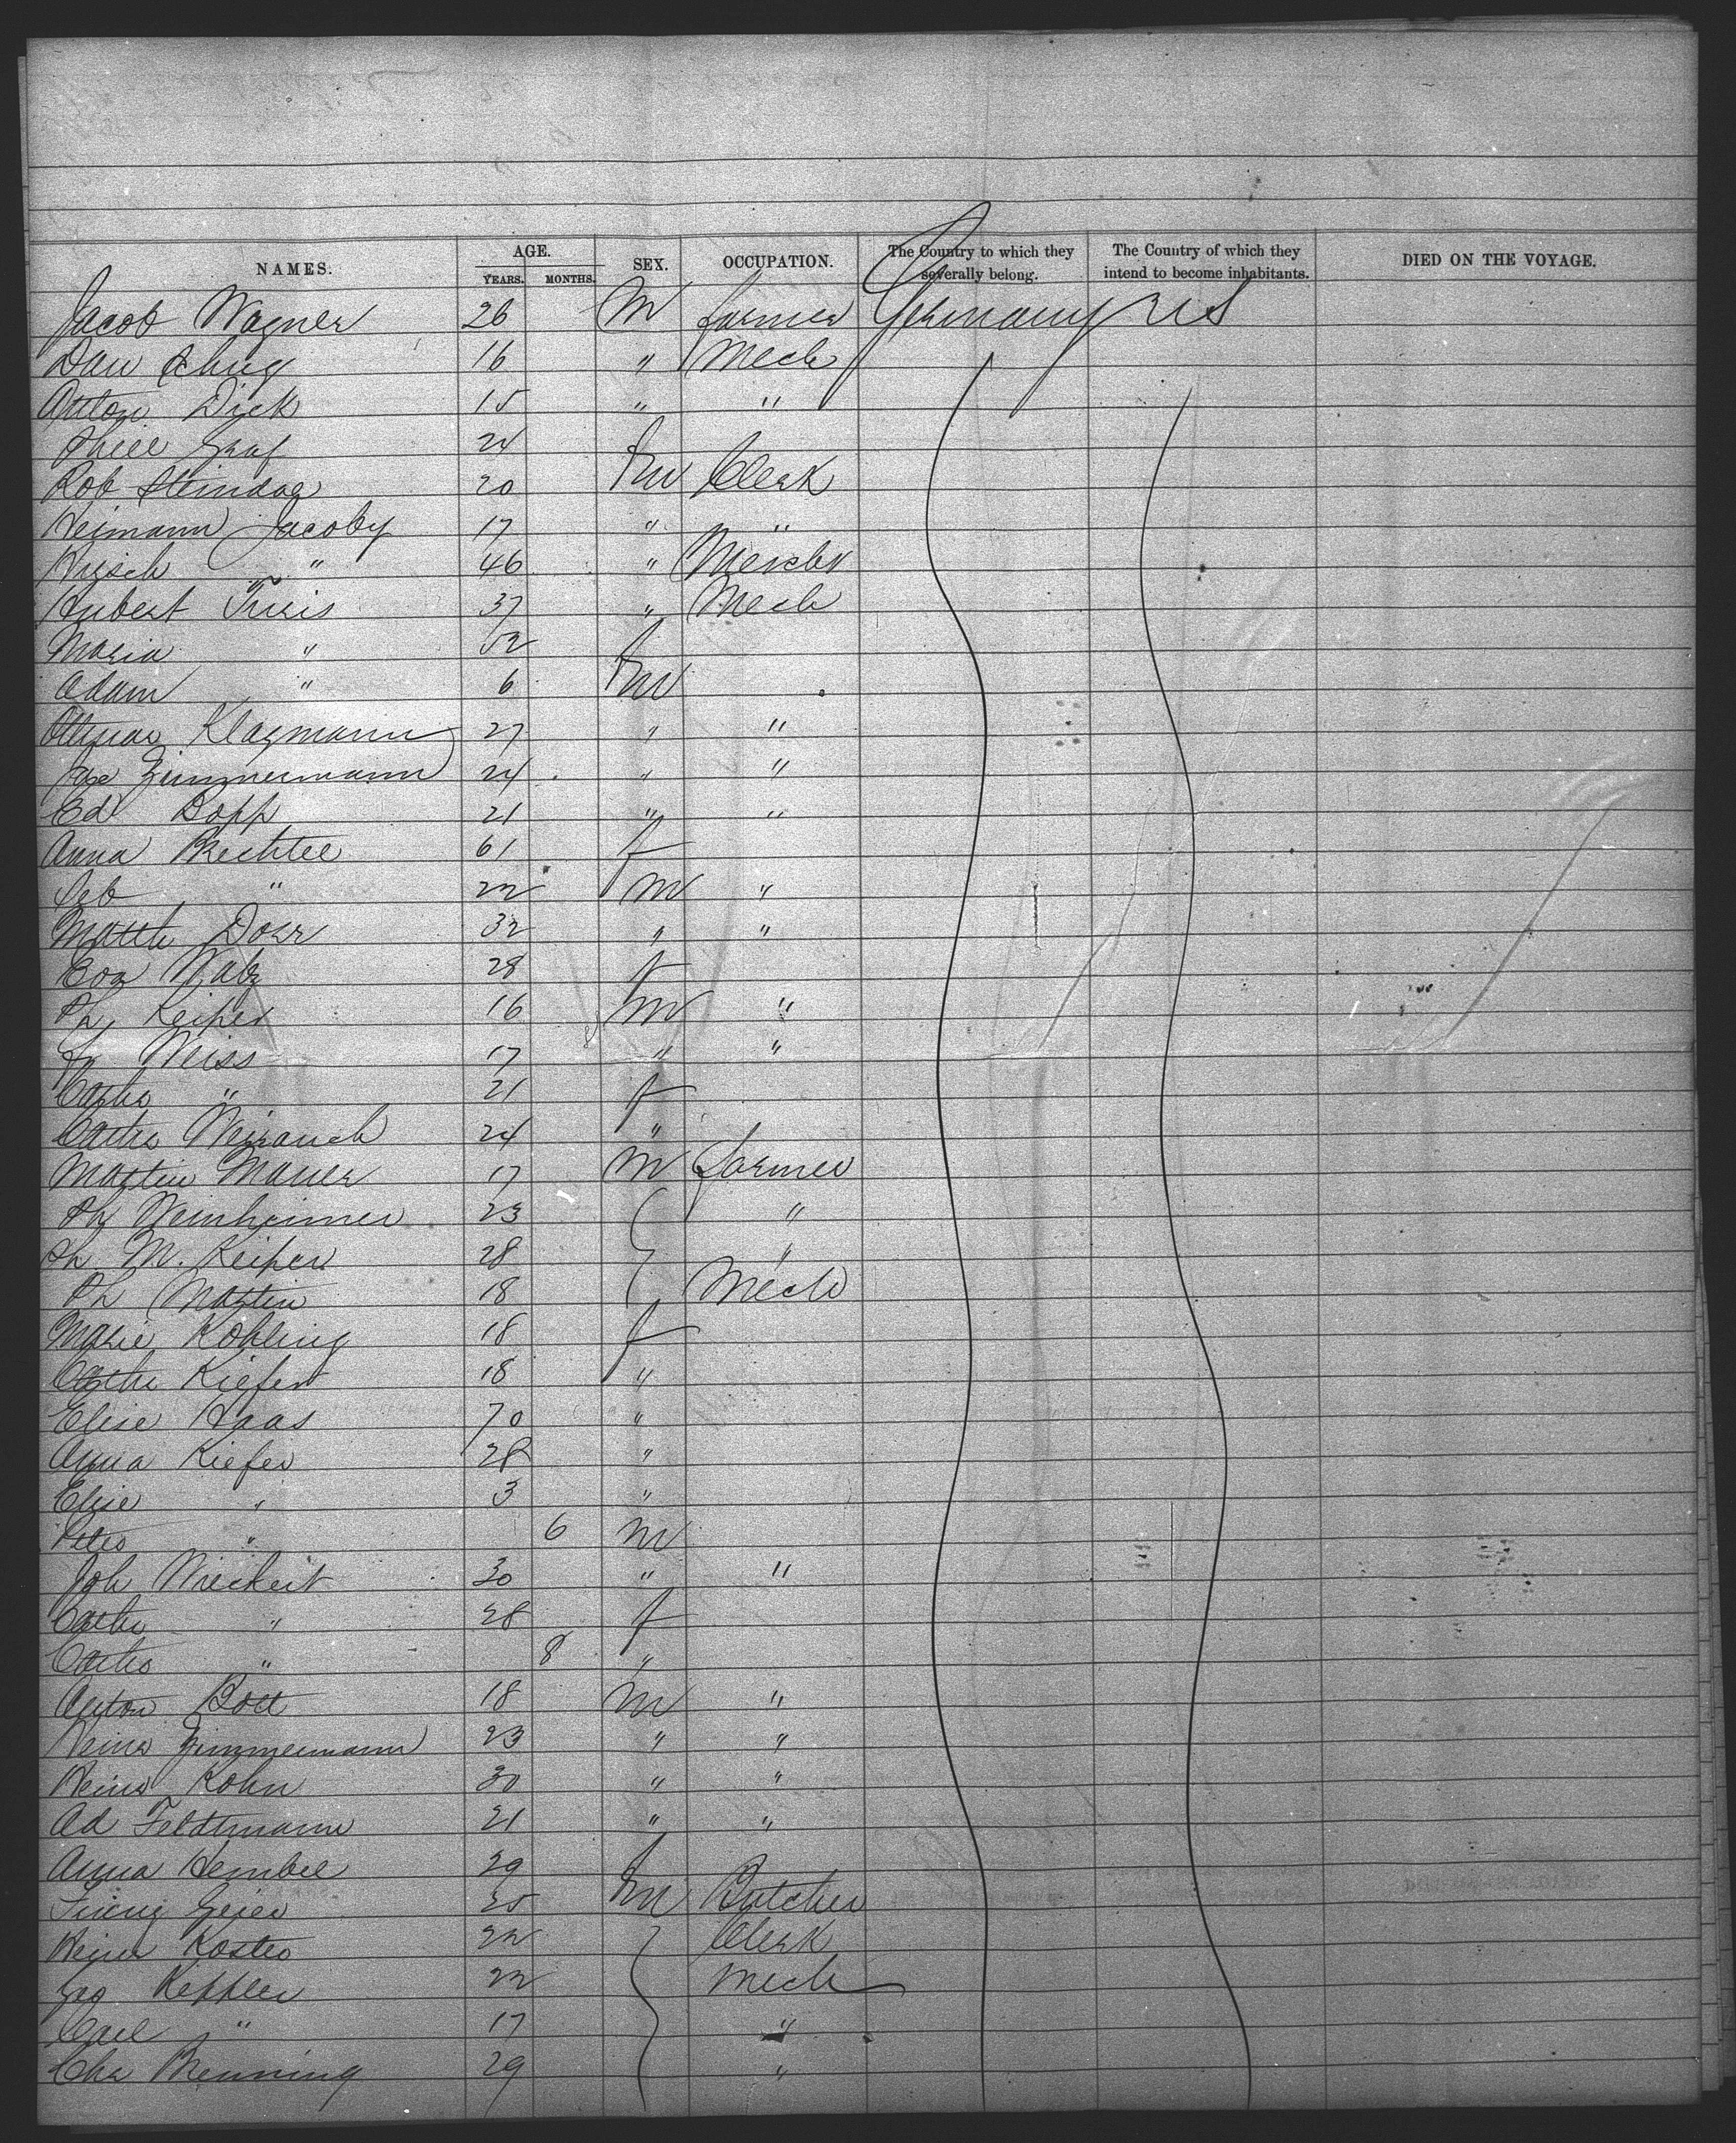 NAMES. AGE. YEARS. MONTHS. SEX. OCCUPATION. The Country to which they severally belong. The Country of which they intend to become inhabitants. DIED ON THE VOYAGE.
Jacob Wagner 26 M farmer Germany U S
Dan Schug 16 " Mech
Anton Dick 15 " "
Graf 24 f
Rob Steindor 20 m Clerk
Heimann Jacoby 17 " "
Hirsch " 46 " Merchr
Hubert 37 " Mech
Maria " 52 f
Adam " 6 m
Klagmann 27 " "
Jos Zimmermann 24 " "
Ed Bopp 21 " "
Anna Brechtel 61 f
Seb " 22 m "
Matth Dorr 32 " "
Eva Walz 28 f
Ph Keiper 16 m "
Fr Weiss 17 " "
Cathr " 21 f
Cathr Weirauch 24 "
Martin Mauer 17 m farmer
Ph Weinheimer 23 "
Ph M. Keiper 28 "
Ph Martin 18 Mech
Marie Kohling 18 f
Cathr Kiefer 18 "
Elise Haas 70 "
Anna Kiefer 28 "
Elise " 3 "
Peter " 6 m
Joh Wieckert 30 " "
Cathr " 28 f
Cathr " 8 "
Anton Bott 18 m "
Heinr Zimmermann 23 " "
Heinr Kohn 30 " "
Ad Feldtmann 21 " "
Anna Hembel 29 f
Geier 25 m Butcher
Heinr Koster 22 Clerk
Geo Keppler 22 mech
Carl " 17 "
Chr Brenning 29 "